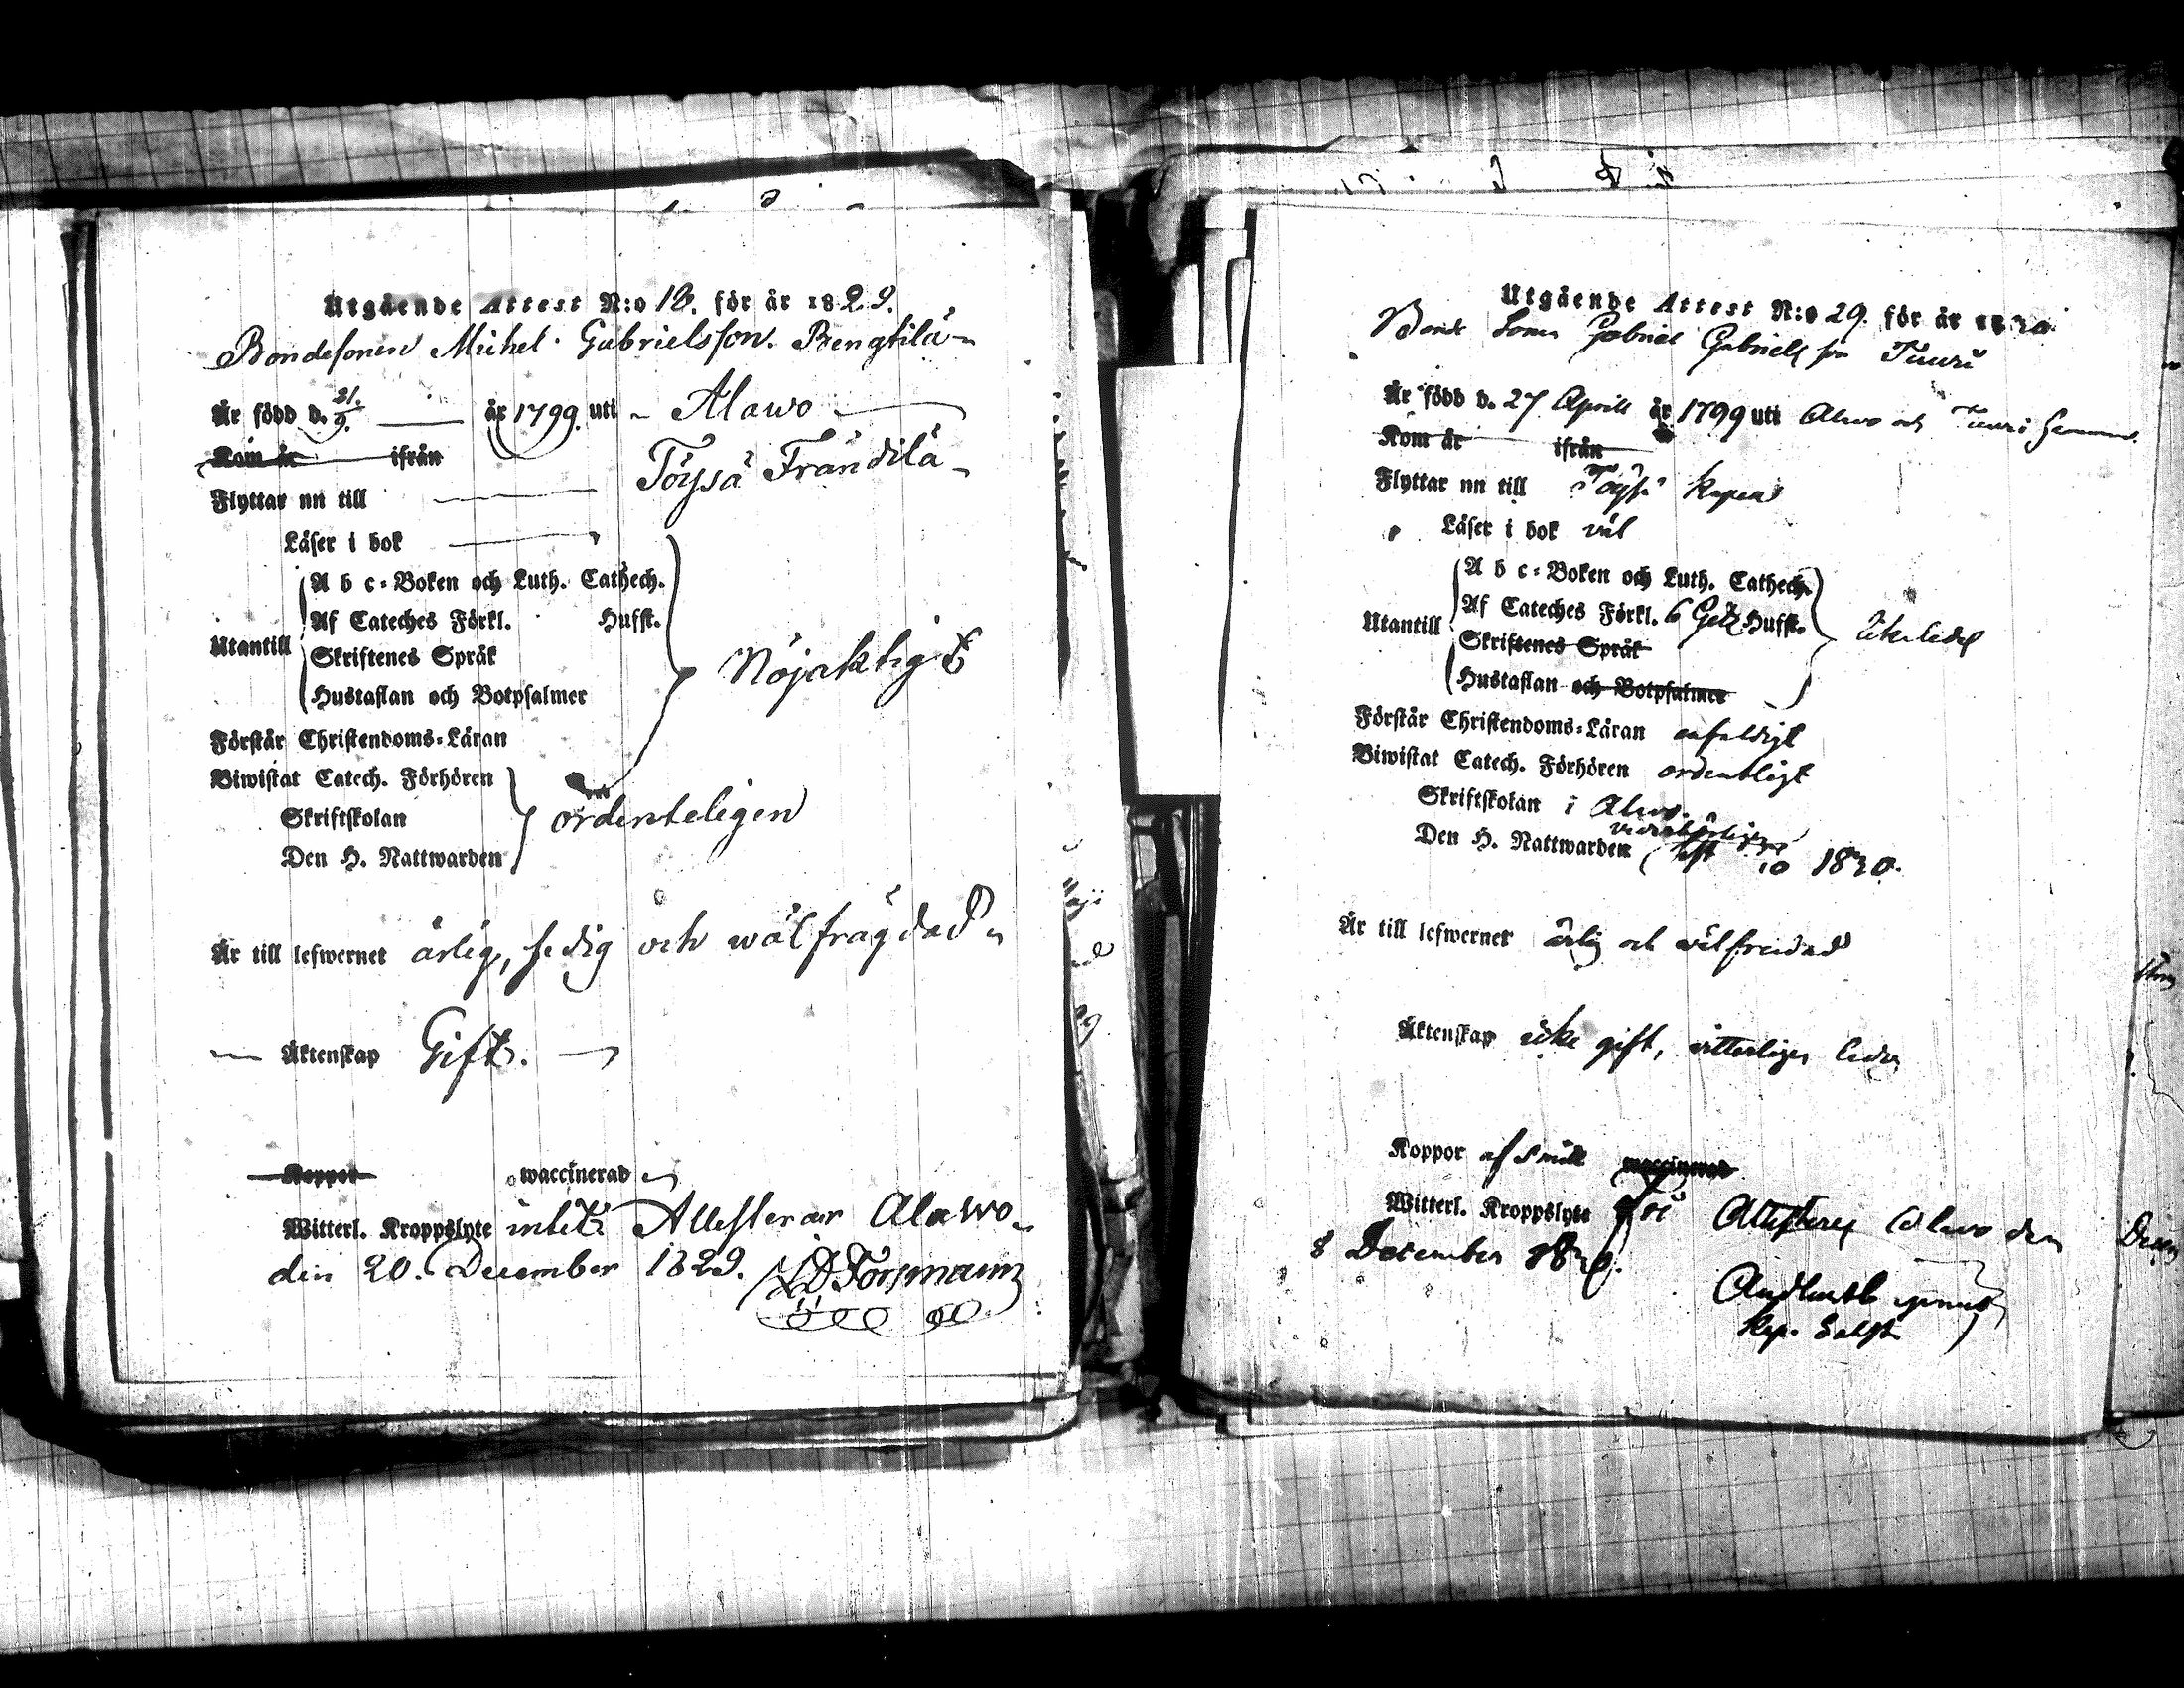 Utgående Attest N:o 18. för år 1829.
Bondesonen Michel Gabrielsson Bengtilä
Är född d. 21/9. år 1799. uti Alawo
Kom år ifrån
Flyttar nu till Töysä Frändilä
Läser i bok
A b c-Boken och Luth. Cathech.
Af Cateches Förkl. Hufst.
Utantill
Skriftenes Språk
Hustaflan och Botpsalmer
Nöjaktigt
Förstår Christendoms-Läran
Biwistat Catech. Förhören
Skriftskolan
ordenteligen
Den H. Nattwarden
Är till lefwernet ärlig, sedig och wälfrägdad
Äktenskap Gift.
Koppor waccinerad
Witterl. Kroppslyte intet. Attesterar Alawo
den 20. December 1829. Forsmann
Utgående Attest N:o 29. för år 1830
Bonde Sonen Gabriel Gabriels son Tuuri
Är född d. 27 April år 1799 uti Alavo och Tuuri
Kom år ifrån
Flyttar nu till Töysä kapell
Läser i bok väl
A b c-Boken och Luth. Cathech.
Af Cateches Förkl. 6 Hufst.
Utantill
Skriftenes Språk
Hustaflan och Botpsalmer
Förstår Christendoms-Läran enfaldigt
Biwistat Catech. Förhören ordentligt
Skriftskolan i Alavo.
Den H. Nattwarden 1830.
Är till lefwernet ärlig och välfrejdad
Äktenskap icke gift, vitterligen ledig
Koppor af waccinerad
Witterl. Kroppslyte fri Attesterer Alavo den
8 December 1830.
Kap.